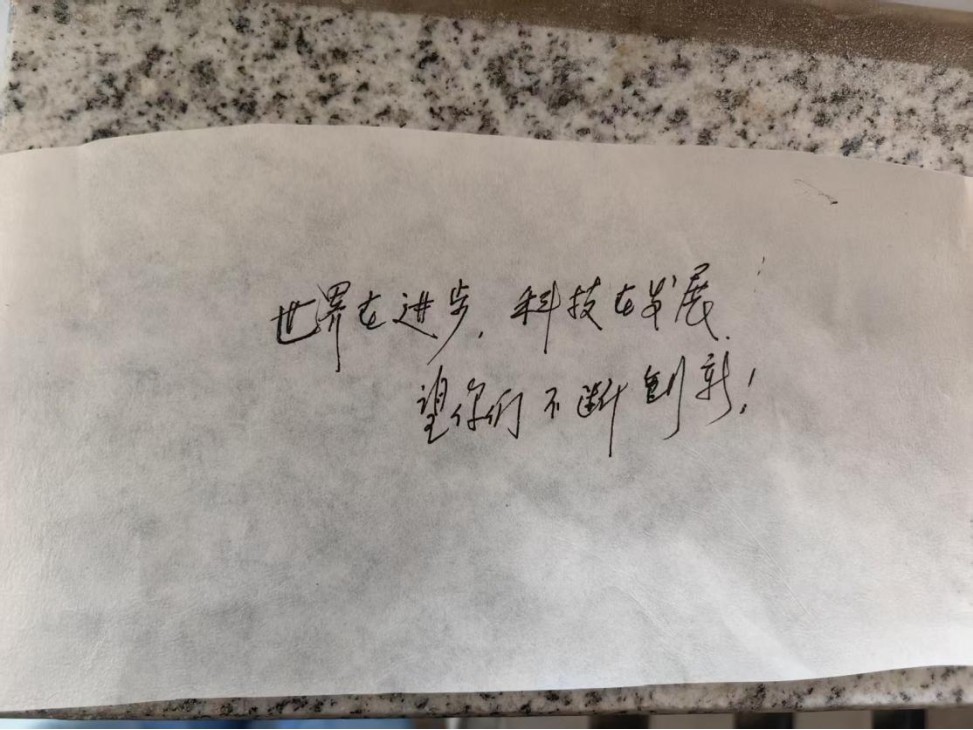 世界在进步，科技在发展.
望你们不断创新！